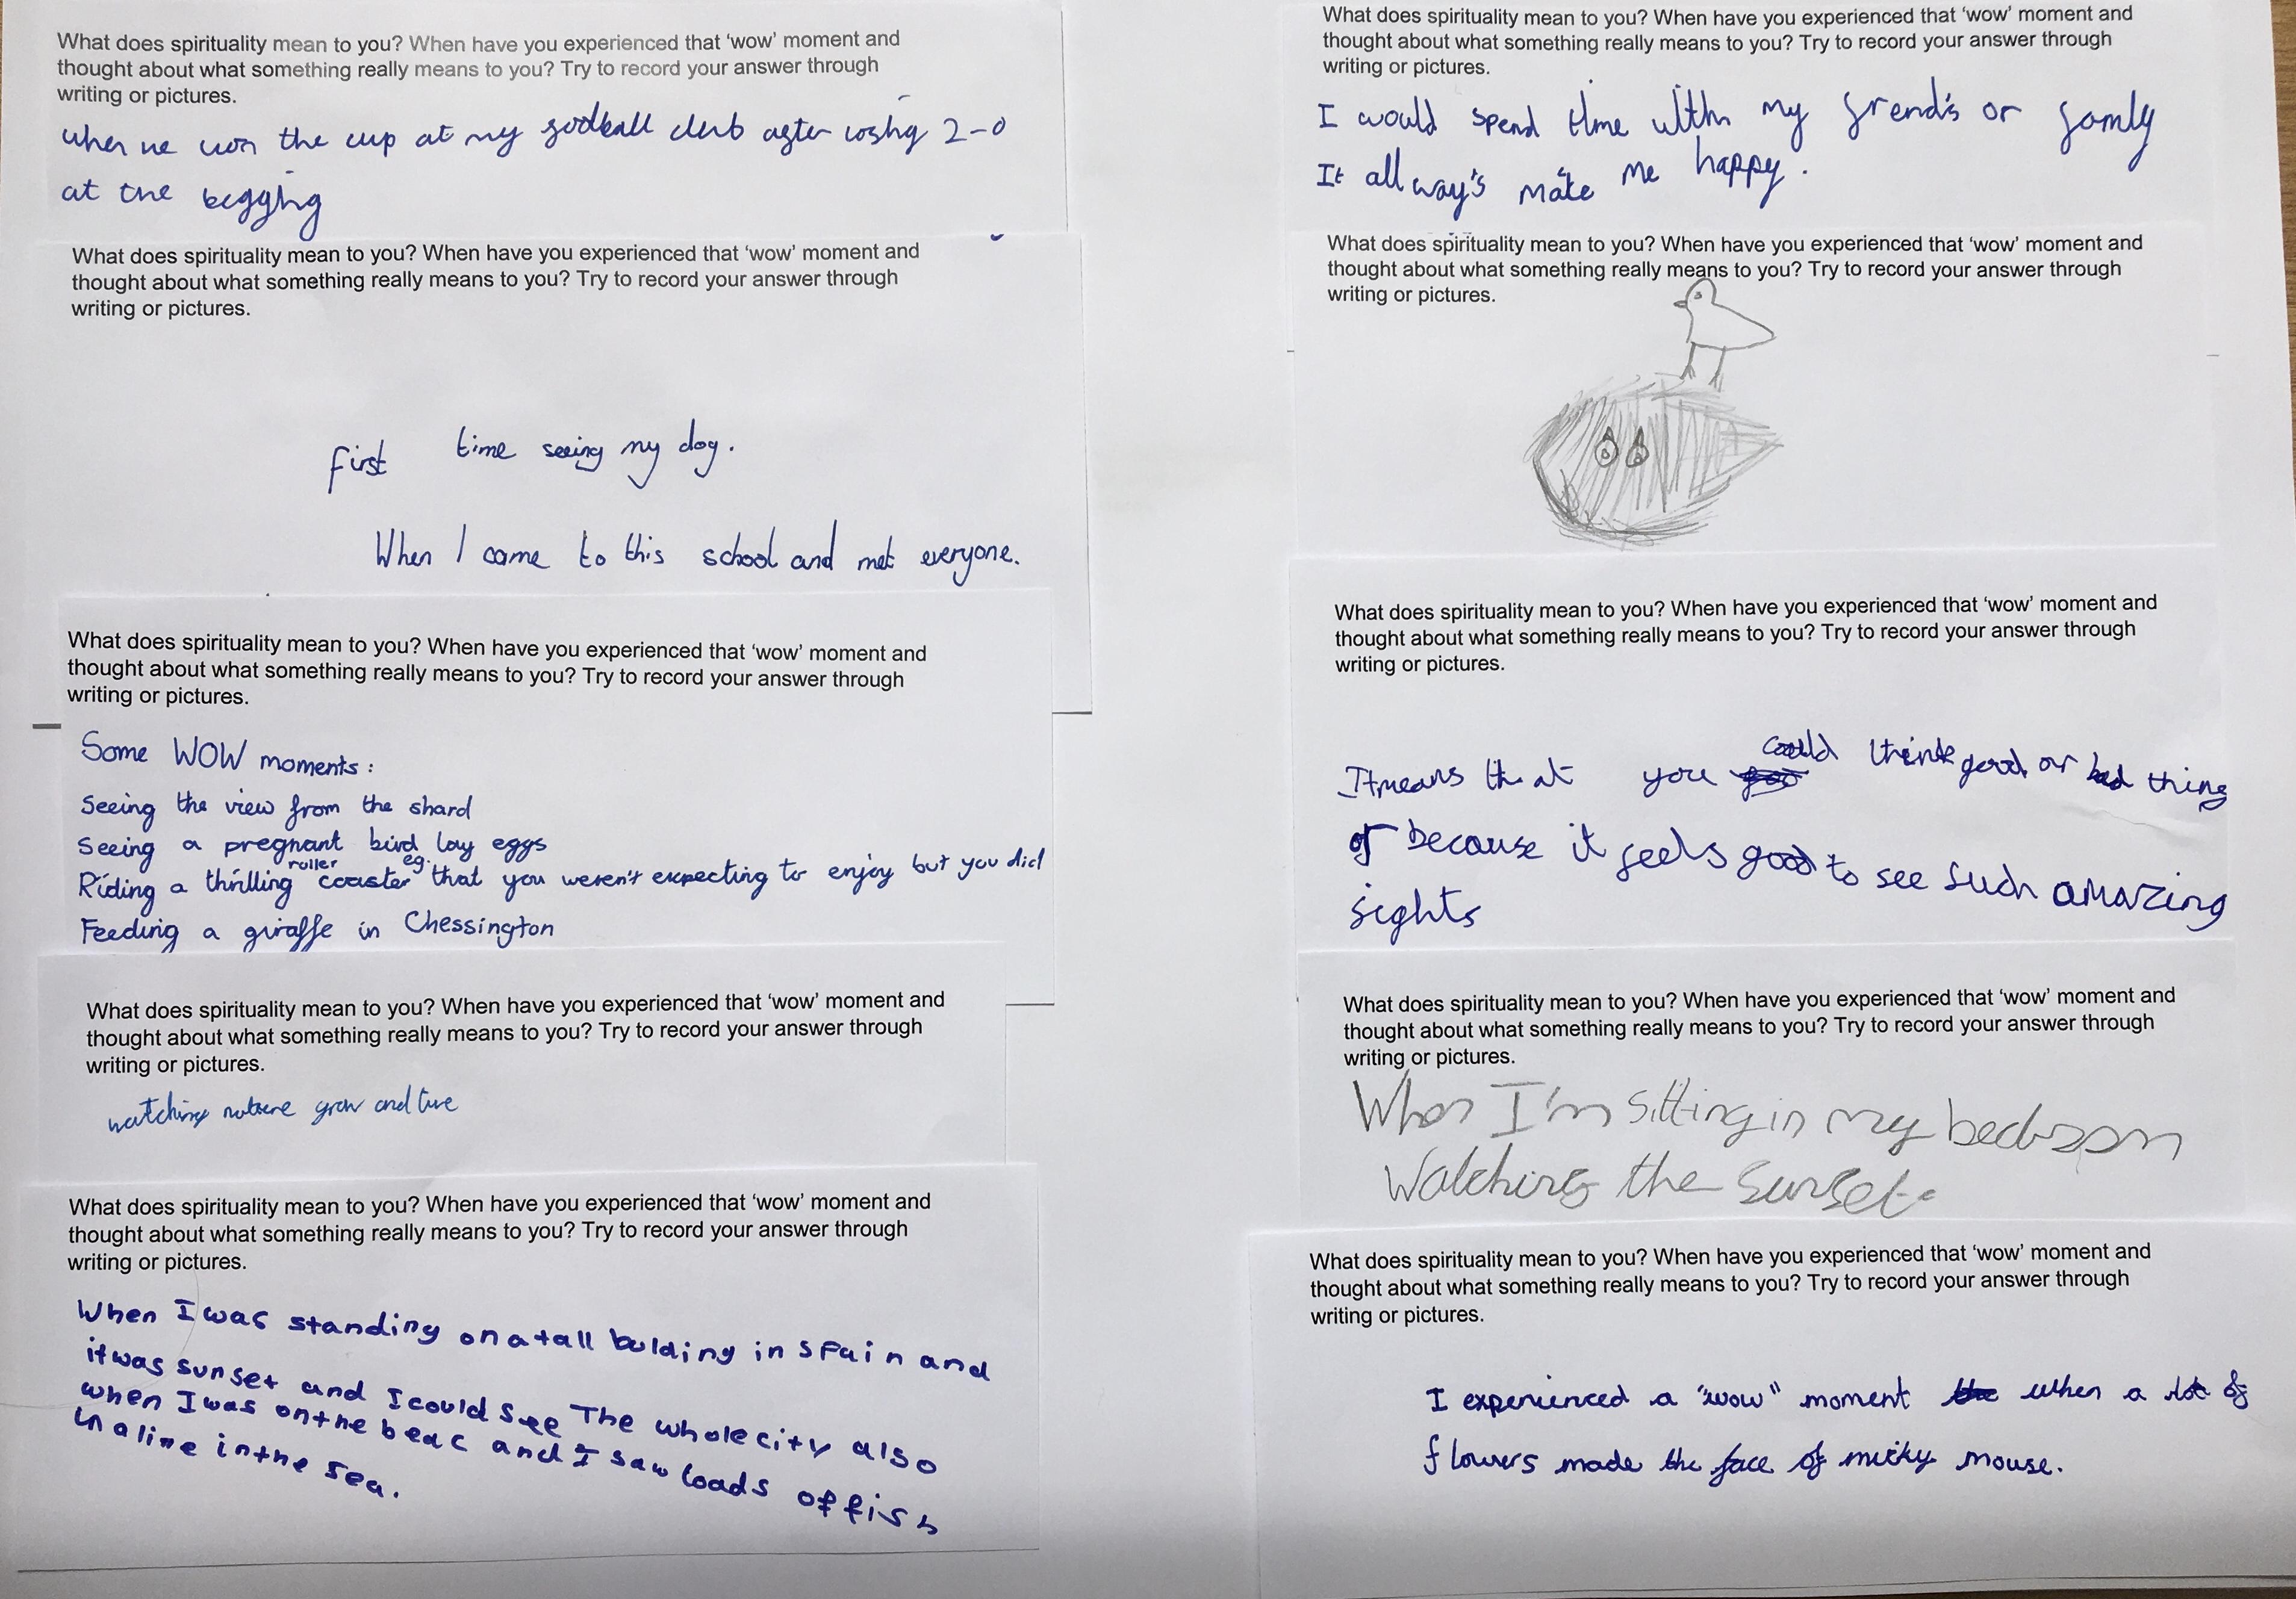 What does spirituality mean to you? When have you experienced that ‘wow’ moment and
thought about what something really means to you? Try to record your answer through
writing or pictures.
when we won the cup at my football club after losing 2-0
at the beggng
What does spirituality mean to you? When have you experienced that ‘wow’ moment and
thought about what something really means to you? Try to record your answer through
writing or pictures.
First time seeing my dog.
When I came to this school and met everyone.
What does spirituality mean to you? When have you experienced that ‘wow’ moment and
thought about what something really means to you? Try to record your answer through
writing or pictures.
Some WOW moments:
Seeing the view from the shard
Seeing a pregnant bird lay eggs
roller eg.
Riding a thrilling coaster that you weren't expecting to enjoy but you did
Feeding a giraffe in Chessington
What does spirituality mean to you? When have you experienced that ‘wow’ moment and
thought about what something really means to you? Try to record your answer through
writing or pictures.
watching nature grow and live
What does spirituality mean to you? When have you experienced that ‘wow’ moment and
thought about what something really means to you? Try to record your answer through
writing or pictures.
When I was standing on a tall bulding in spain and
it was sunset and I could see The whole city also
when I was on the beac and I saw loads of fish
in a line in the sea.
What does spirituality mean to you? When have you experienced that ‘wow’ moment and
thought about what something really means to you? Try to record your answer through
writing or pictures.
I would spend time with my frend's or famly
It all way's make me happy.
What does spirituality mean to you? When have you experienced that ‘wow’ moment and
thought about what something really means to you? Try to record your answer through
writing or pictures.
What does spirituality mean to you? When have you experienced that ‘wow’ moment and
thought about what something really means to you? Try to record your answer through
writing or pictures.
It means that you could think good or bad thing
or because it feels good to see such amazing
sights
What does spirituality mean to you? When have you experienced that ‘wow’ moment and
thought about what something really means to you? Try to record your answer through
writing or pictures.
When I'm sitting in my bedroom
Watching the sunset.
What does spirituality mean to you? When have you experienced that ‘wow’ moment and
thought about what something really means to you? Try to record your answer through
writing or pictures.
I experienced a "wow" moment when a lot of
flowers made the face of micky mouse.